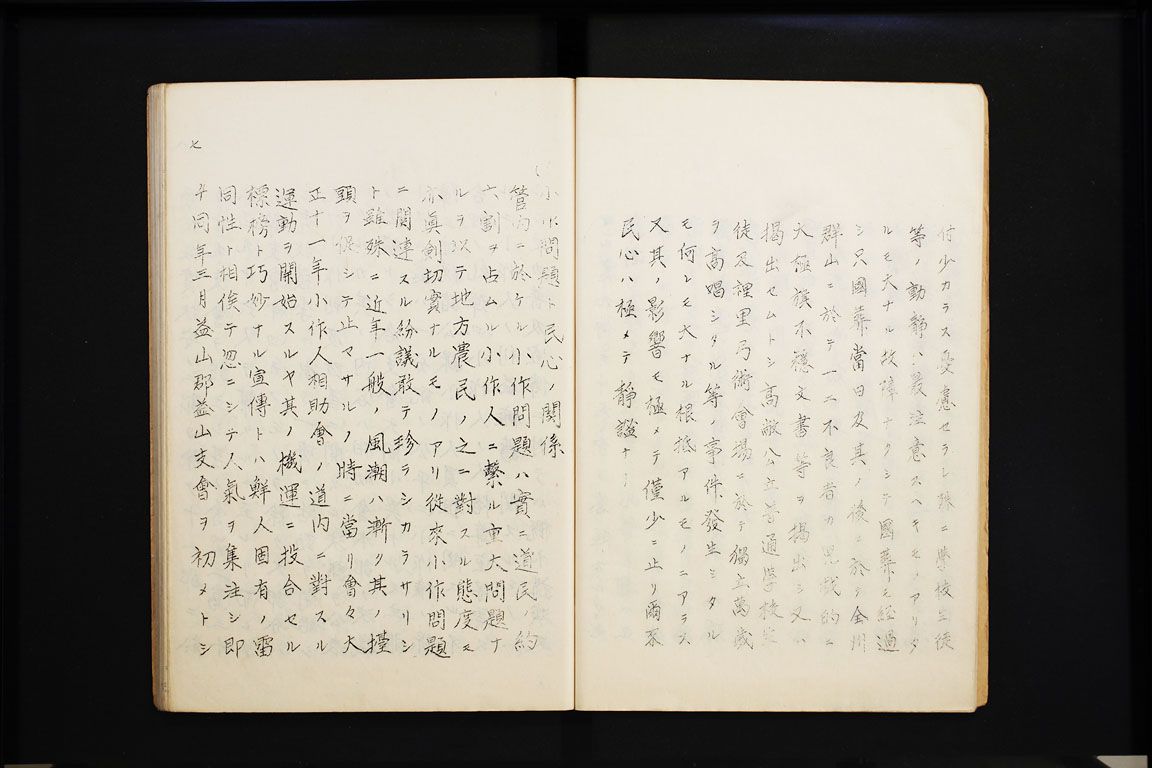 付少カラス憂慮セラレ殊ニ學校生徒
等ノ動靜ハ最注意スヘキモノアリタ
ルモ大ナル故障ナクシテ國葬モ經過
シ只國葬當日及其ノ後ニ於テ全州
群山ニ於テ一二不良者カ的ニ
太極旗不穩文書等ヲ揭出シ又ハ
揭出セムトシ高敞公立普通學校生
徒及裡里弓術會場ニ於テ獨立萬歲
ヲ高唱シタル等ノ事件發生シタル
モ何レモ大ナル根抵アルモノニアラス
又其ノ影響モ極メテ僅少ニ止リ爾來
民心ハ極メテ靜謐ナリ
小作問題ト民心ノ關係
管內ニ於ケル小作問題ハ實ニ道民ノ約
六割ヲ占ムル小作人ニ繫ル重大問題ナ
ルヲ以テ地方農民ノ之ニ對スル態度モ
亦眞劍切實ナルモノアリ從來小作問題
ニ關連スル紛議敢テ珍ラシカラサリシ
ト雖殊ニ近年一般ノ風潮ハ漸ク其ノ擡
頭ヲ促シテ止マサルノ時ニ當リ會々大
正十一年小作人相助會ノ道內ニ對スル
運動ヲ開始スルヤ其ノ機運ニ投合セル
標榜ト巧妙ナル宣傳トハ鮮人固有ノ雷
同性ト相俟テ忽ニシテ人氣ヲ集注シ即
チ同年三月益山郡益山支會ヲ初メトシ
七